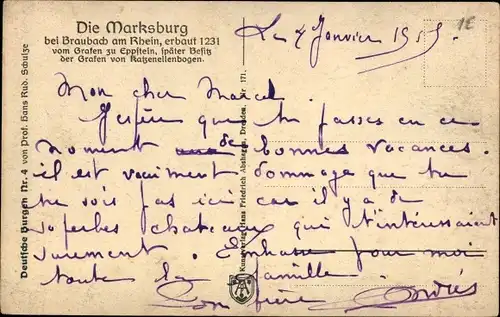 Die Marksburg
bei Braubach am Rhein, erbaut 1231
vom Grafen zu Eppstein, später Besitz
der Grafen von Katzenellenbogen.
Le 4 Janvier
1E
Mon cher Marcel.
J'espère que tu passes en ce
moment de bonnes vacances.
il est vraiment dommage que tu
ne sois pas ici car il y a de
superbes chateaux qui t'intéressaient
surement. Embrasse pour moi
toute la famille.
Ton frère André
Deutsche Burgen Nr. 4 von Prof. Hans Rud. Schulze
Kunstverlag Hans Friedrich Abshagen, Dresden. Nr. 171.